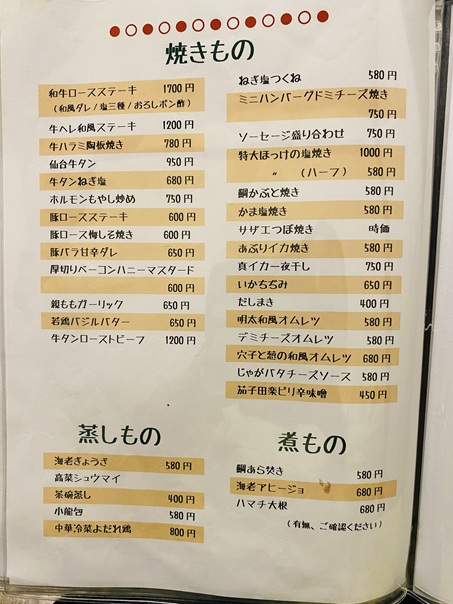 焼きもの
和牛ロースステーキ 1700円
(和風ダレ/塩三種/おろしポン酢)
牛ヘレ和風ステーキ 1200円
牛ハラミ陶板焼き 780円
仙台牛タン 950円
牛タンねぎ塩 680円
ホルモンもやし炒め 750円
豚ロースステーキ 600円
豚ロース梅しそ焼き 600円
豚バラ甘辛ダレ 650円
厚切りベーコンハニーマスタード
600円
親ももガーリック 650円
若鶏バジルバター 650円
牛タンローストビーフ 1200円
ねぎ塩つくね 580円
ミニハンバーグドミチーズ焼き
750円
ソーセージ盛り合わせ 750円
特大ほっけの塩焼き 1000円
〃 (ハーフ) 580円
鯛かぶと焼き 580円
かま塩焼き 580円
サザエつぼ焼き 時価
あぶりイカ焼き 580円
真イカ一夜干し 750円
いかちぢみ 650円
だしまき 400円
明太和風オムレツ 580円
デミチーズオムレツ 580円
穴子と葱の和風オムレツ 680円
じゃがバタチーズソース 580円
茄子田楽ピリ辛味噌 450円
蒸しもの
海老ぎょうざ 580円
高菜シュウマイ
茶碗蒸し 400円
小籠包 580円
中華冷菜よだれ鶏 800円
煮もの
鯛あら焚き 580円
海老アヒージョ 680円
ハマチ大根 680円
(有無、ご確認ください)